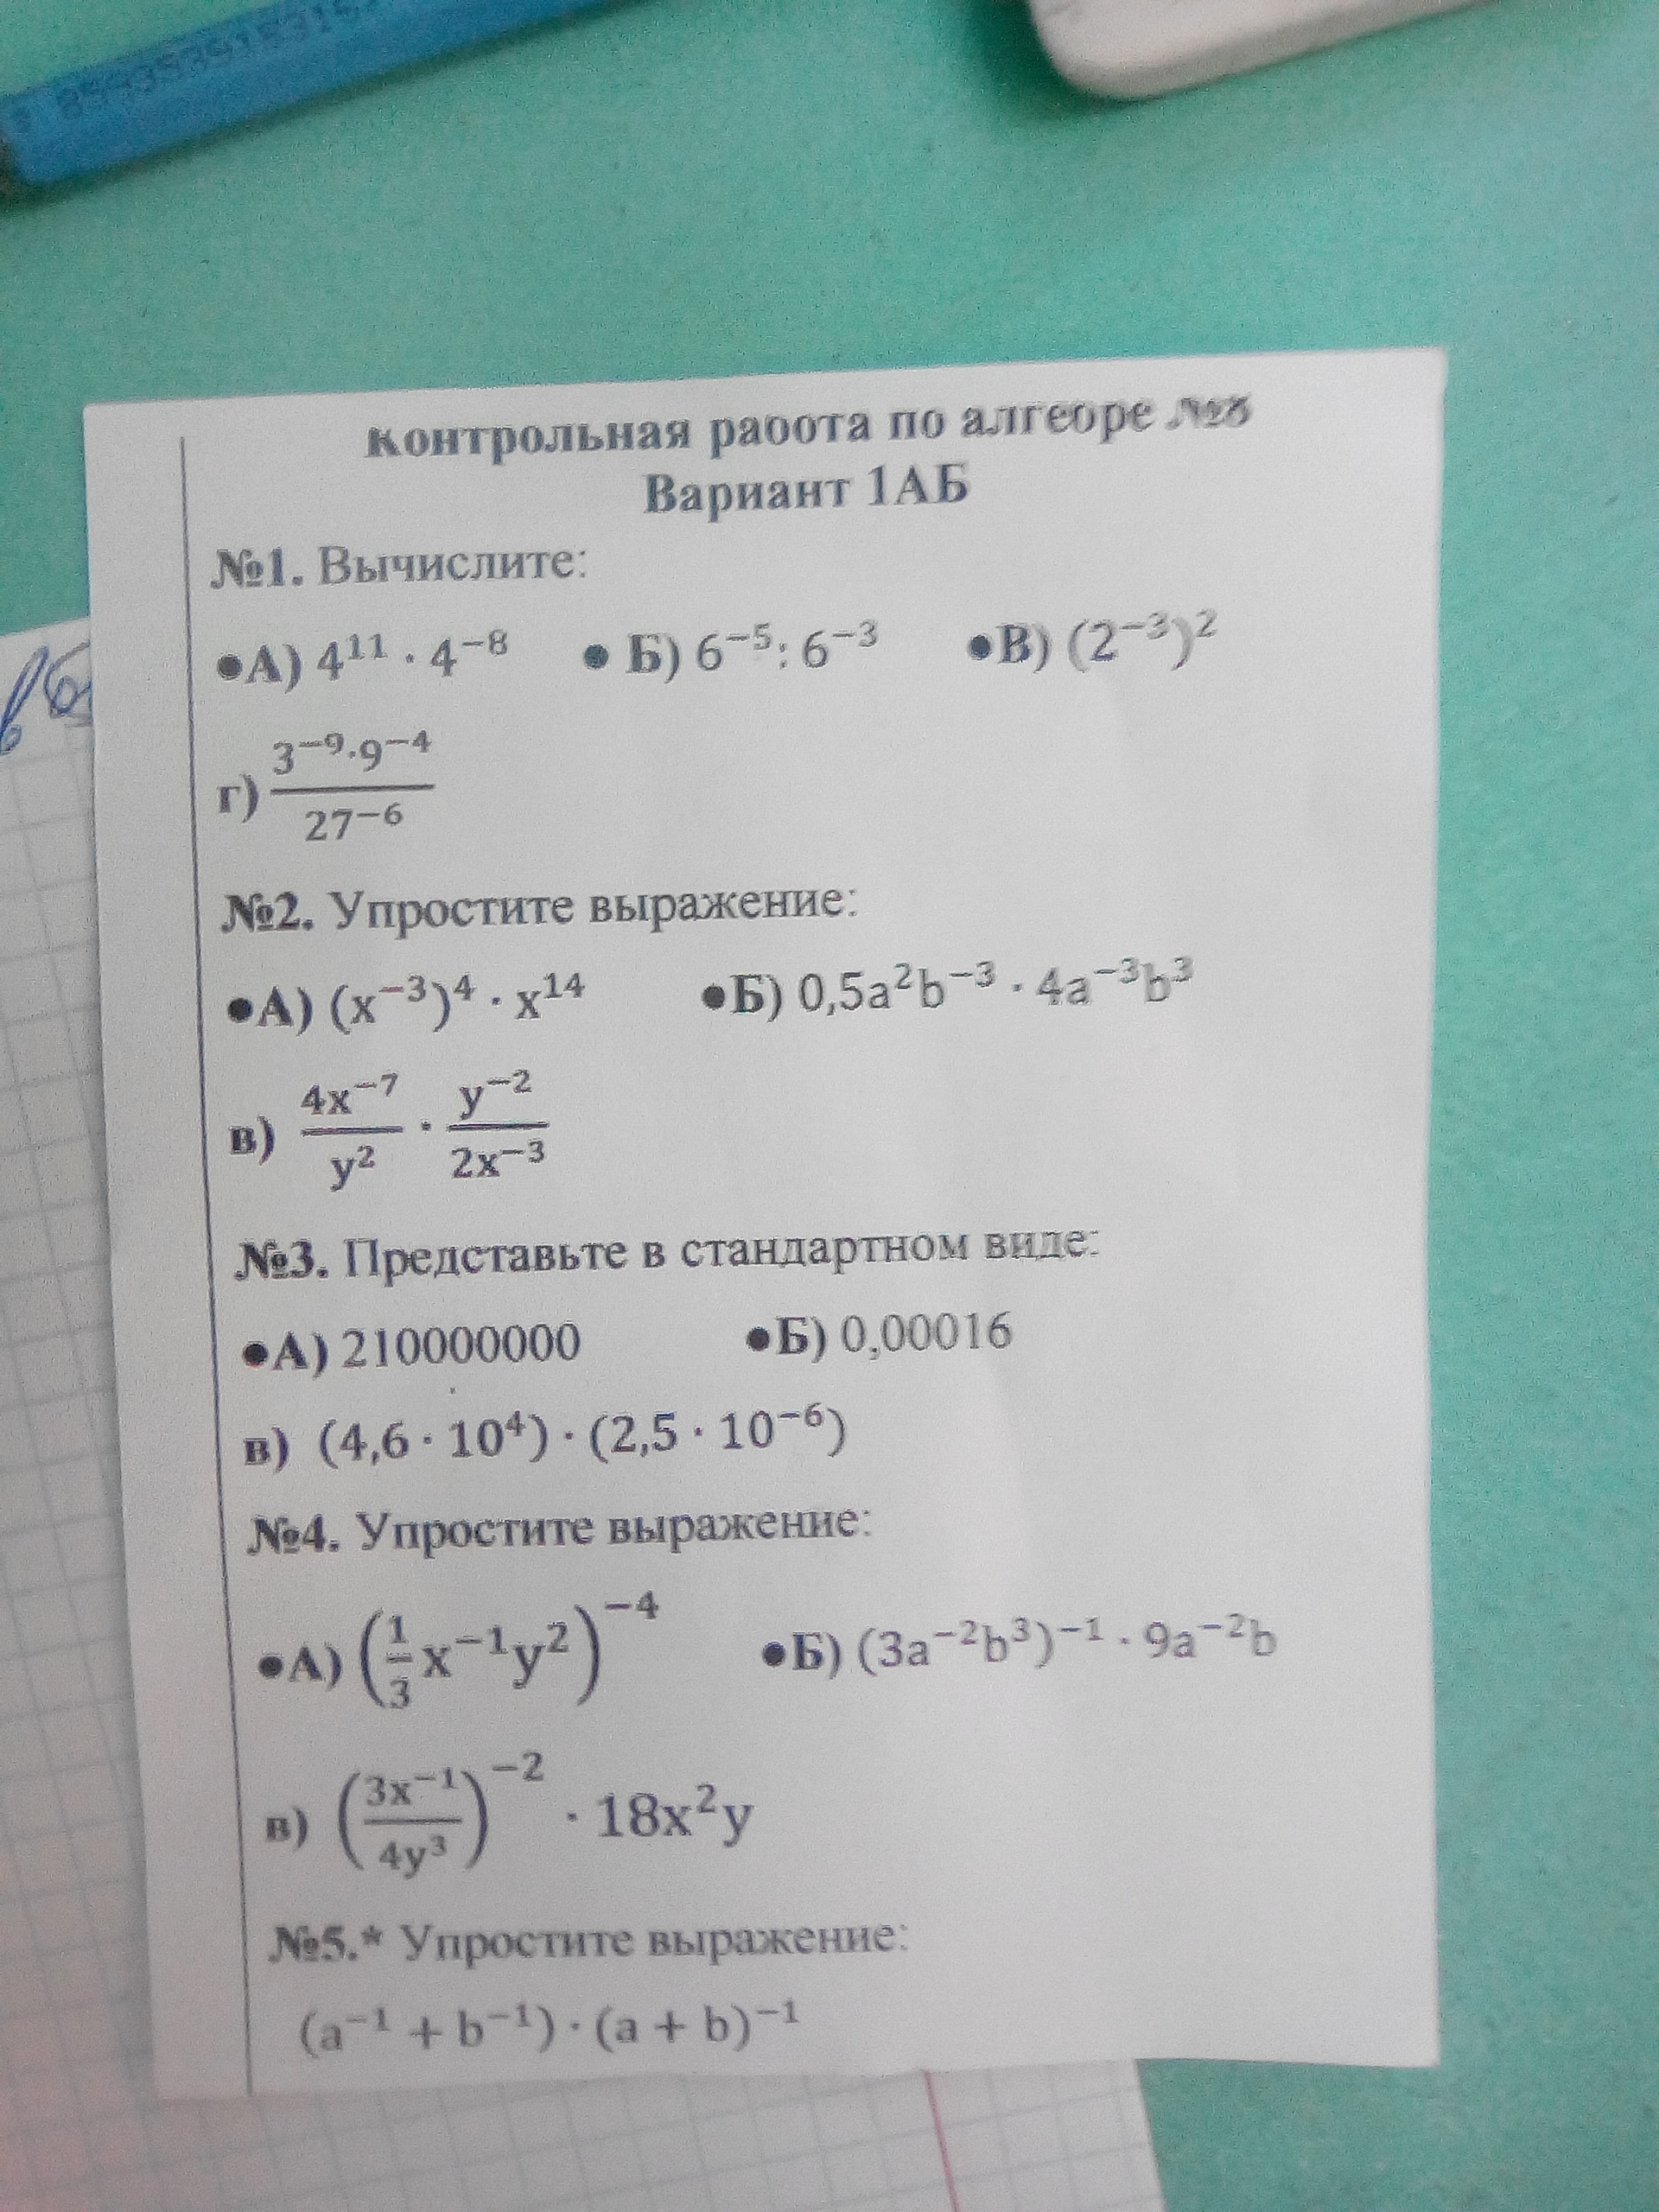 Контрольная работа по алгебре №8
Вариант 1АБ
№1. Вычислите:
•А) 4¹¹ · 4⁻⁸ • Б) 6⁻⁵: 6⁻³ •В) (2⁻³)²
г) (3⁻⁹·9⁻⁴)/(27⁻⁶)
№2. Упростите выражение:
•А) (x⁻³)⁴ · x¹⁴ •Б) 0,5a²b⁻³ · 4a⁻³b³
в) (4x⁻⁷)/(y²) · (y⁻²)/(2x⁻³)
№3. Представьте в стандартном виде:
•А) 210000000 •Б) 0,00016
в) (4,6 · 10⁴) · (2,5 · 10⁻⁶)
№4. Упростите выражение:
•А) (1/3 x⁻¹y²)⁻⁴ •Б) (3a⁻²b³)⁻¹ · 9a⁻²b
в) ((3x⁻¹)/(4y³))⁻² · 18x²y
№5.* Упростите выражение:
(a⁻¹ + b⁻¹) · (a + b)⁻¹